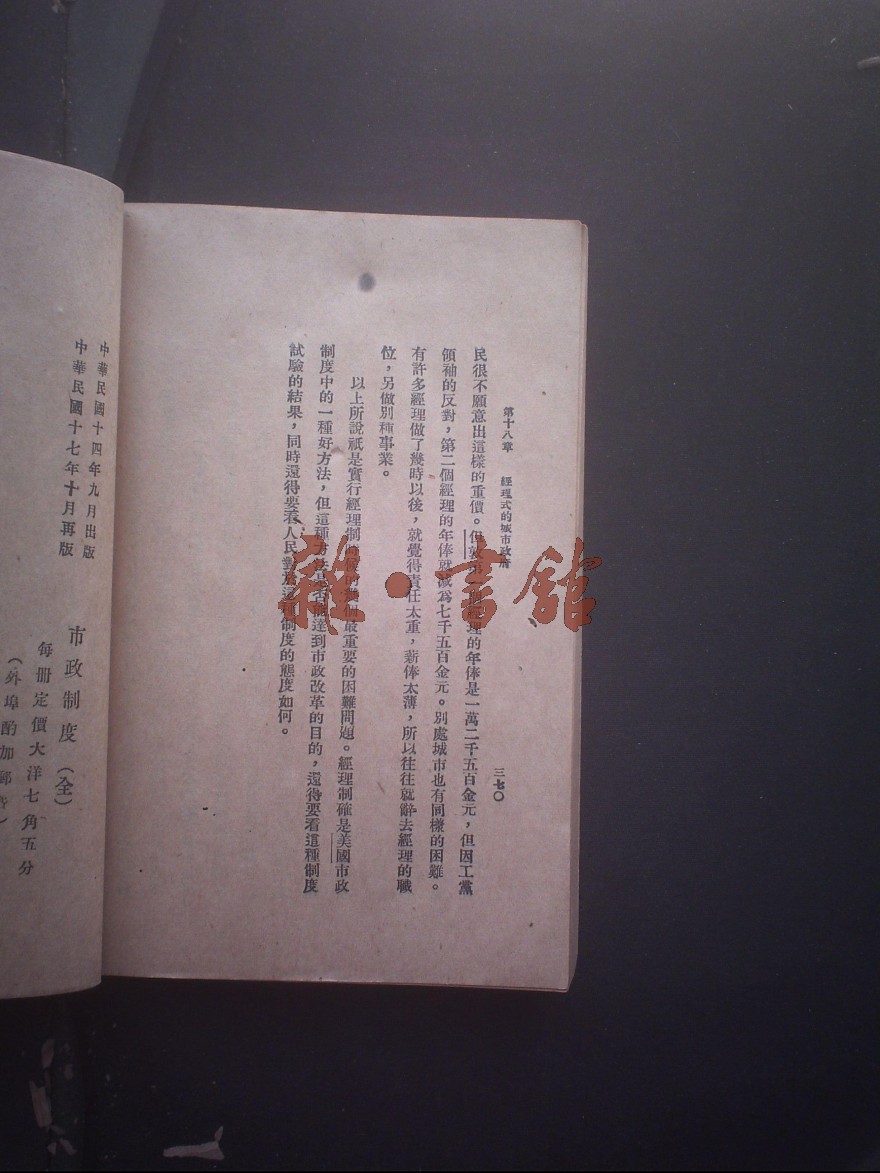 第十八章　經理式的城市政府　三七〇
民很不願意出這樣的重價。但第一個經理的年俸是一萬二千五百金元，但因工黨
領袖的反對，第二個經理的年俸就減爲七千五百金元。別處城市也有同樣的困難。
有許多經理做了幾時以後，就覺得責任太重，薪俸太薄，所以往往就辭去經理的職
位，另做別種事業。
以上所說祇是實行經理制最重要的困難問題。經理制確是美國市政
制度中的一種好方法，但這種方法是否能達到市政改革的目的，還待要看這種制度
試驗的結果，同時還得要看人民對於這種制度的態度如何。
市政制度（全）
每册定價大洋七角五分
（外埠酌加郵）
中華民國十四年九月出版
中華民國十七年十月再版
雜·書館